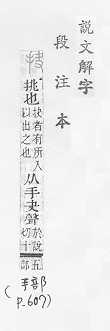 說文解字
段注本
抉
挑也抉者有所入以出之也从手夬聲於說切十五部
(手部
P-607)